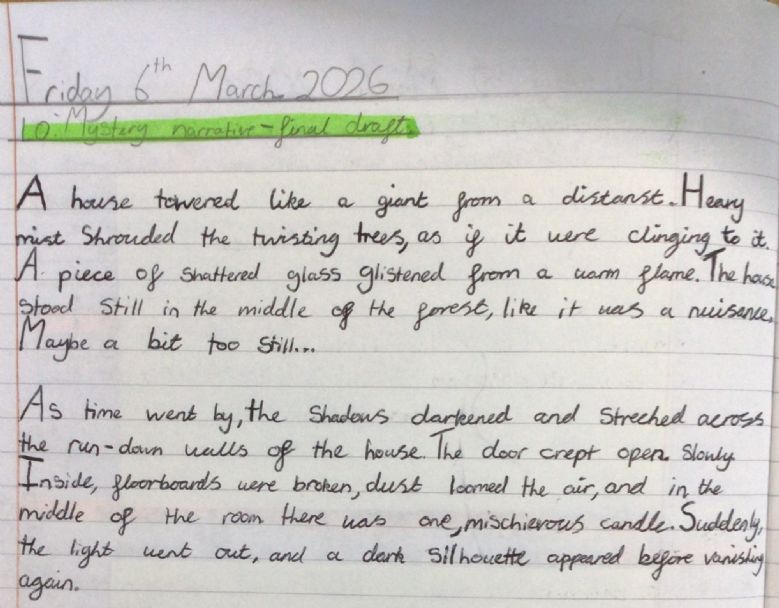 Friday 6th March 2026
LO: Mystery narrative - final draft.
A house towered like a giant from a distanst. Heavy
mist Shrouded the twisting trees, as if it were clinging to it.
A piece of shattered glass glistened from a warm flame. The house
stood still in the middle of the forest, like it was a nuisence.
Maybe a bit too still...
As time went by, the shadows darkened and streched across
the run-down walls of the house. The door crept open slowly
Inside, floorboards were broken, dust loomed the air, and in the
middle of the room there was one, mischievous candle. Suddenly,
the light went out, and a dark silhouette appeared before vanishing
again.